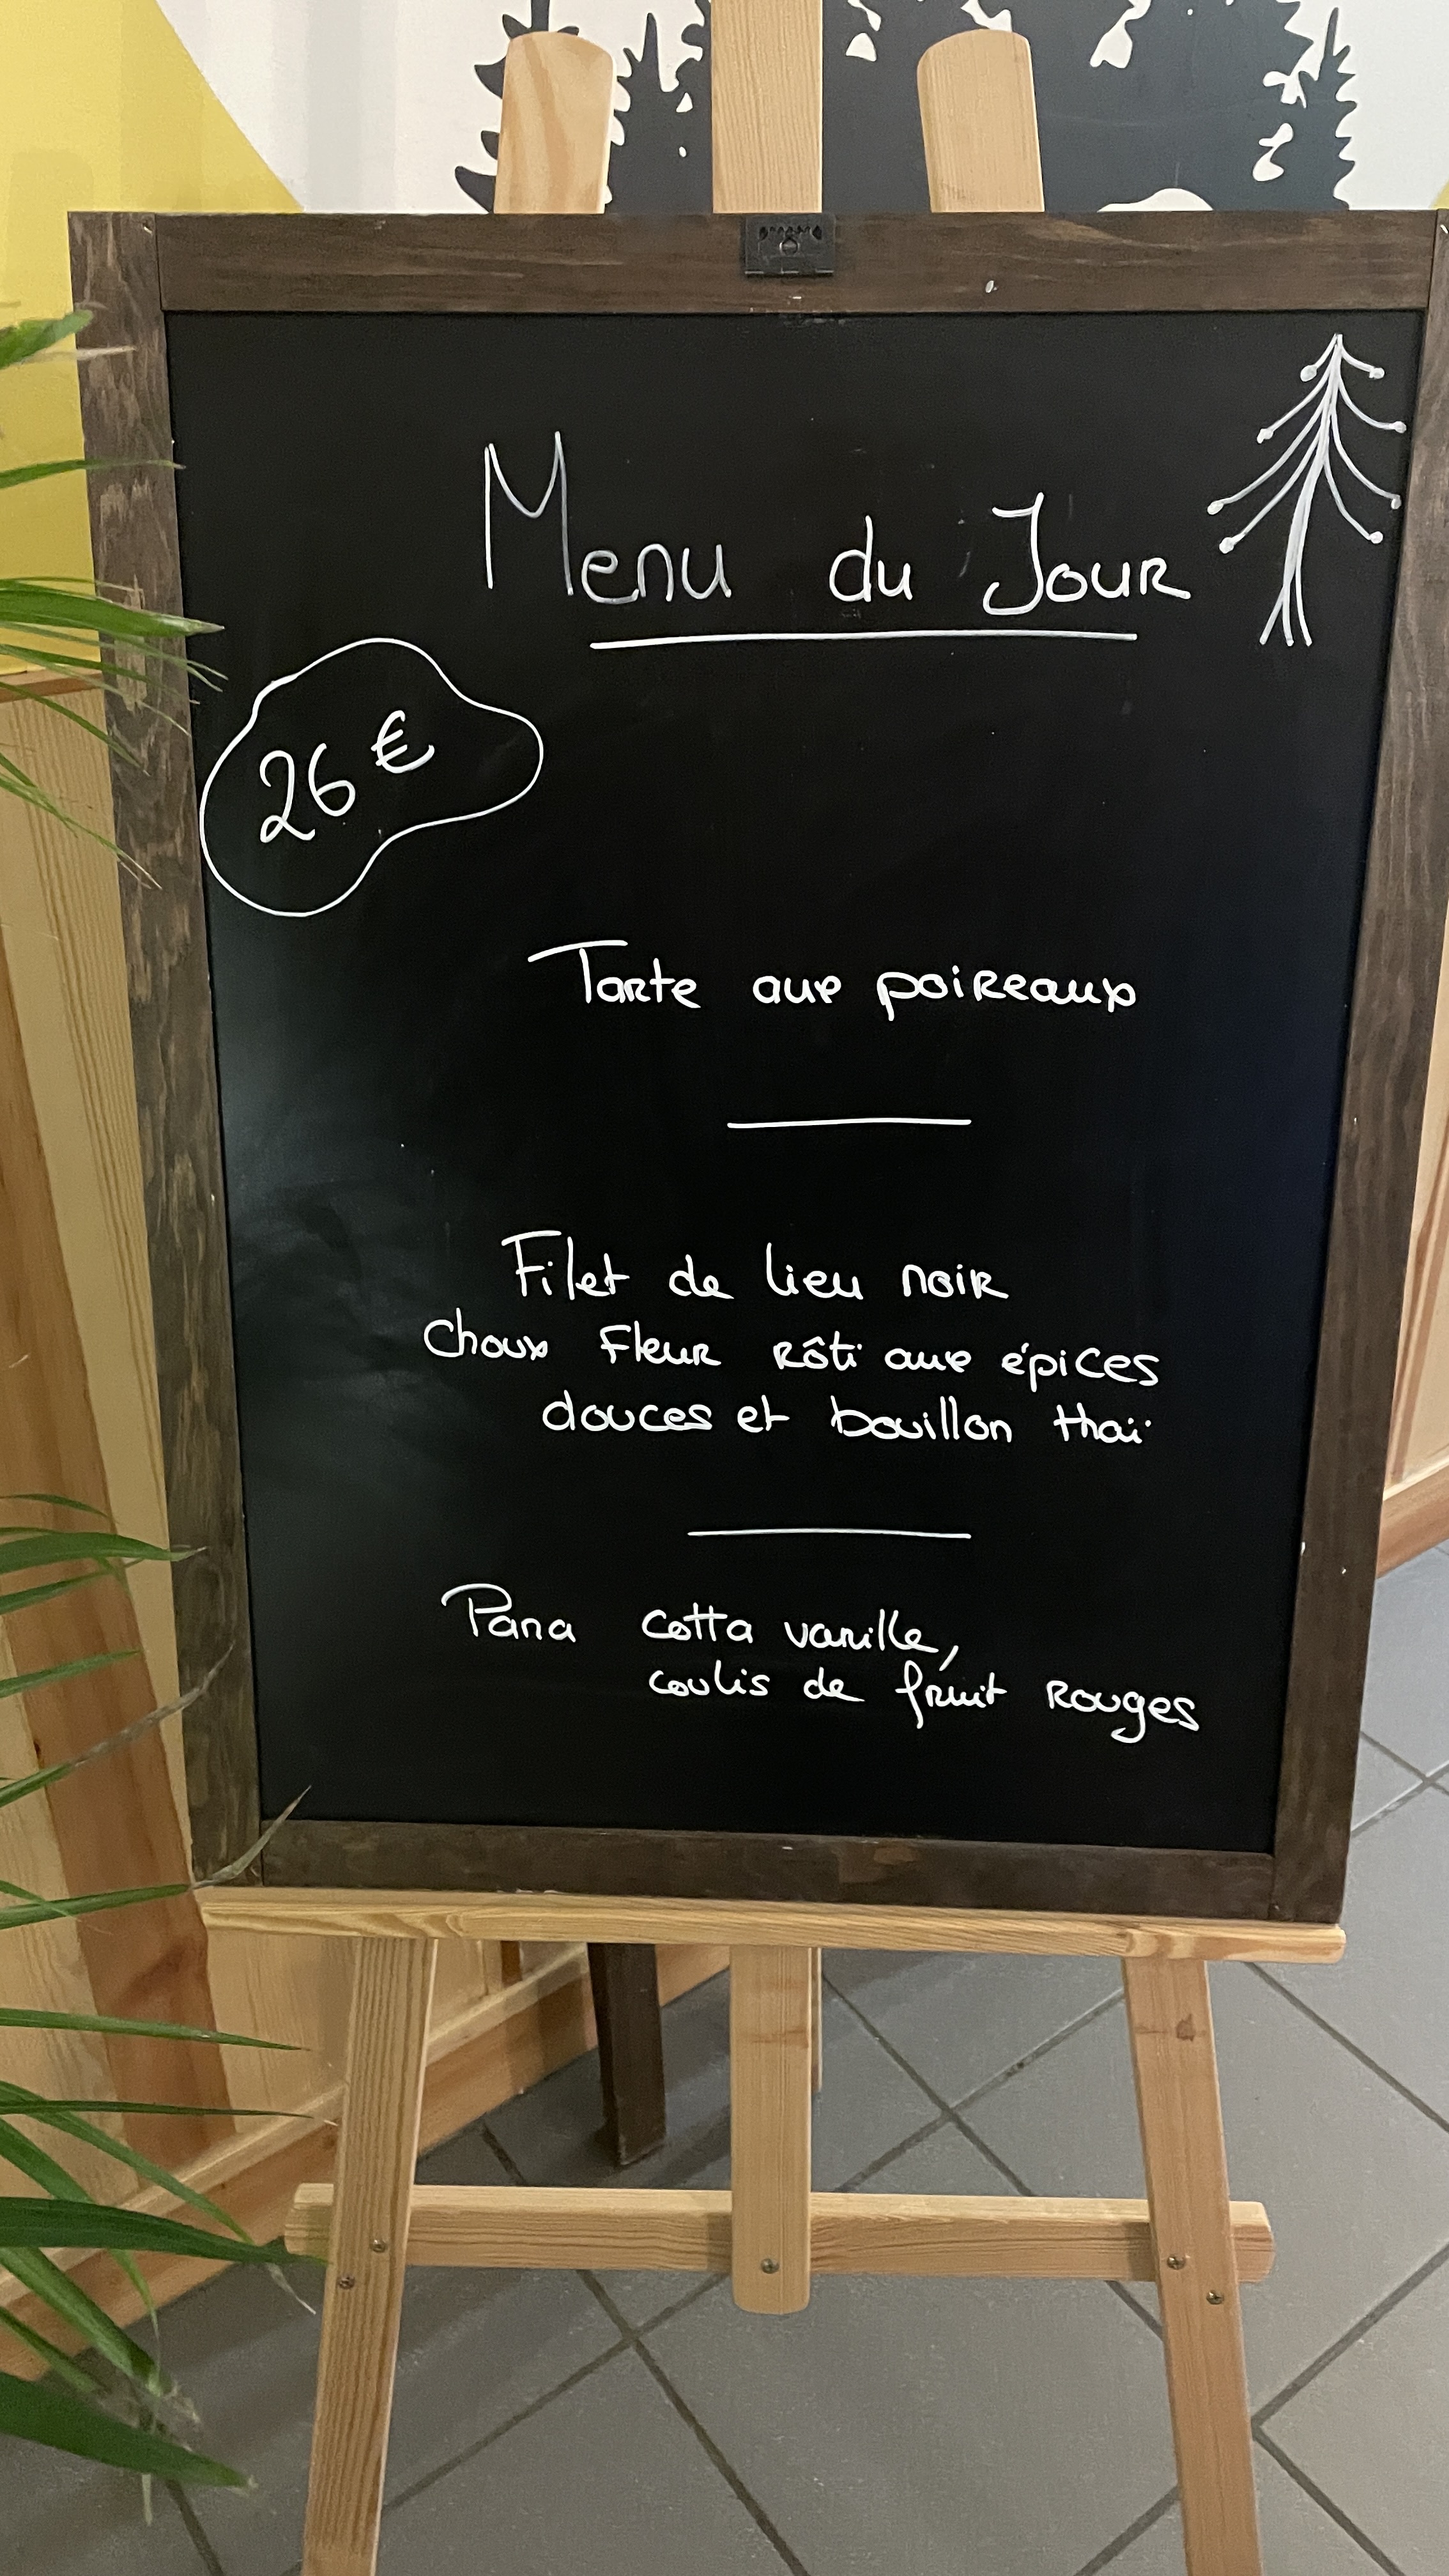 Menu du Jour
26 €
Tarte aux poireaux
Filet de lieu noir
Choux fleur rôti aux épices
douces et bouillon thaï
Pana cotta vanille,
coulis de fruit rouges